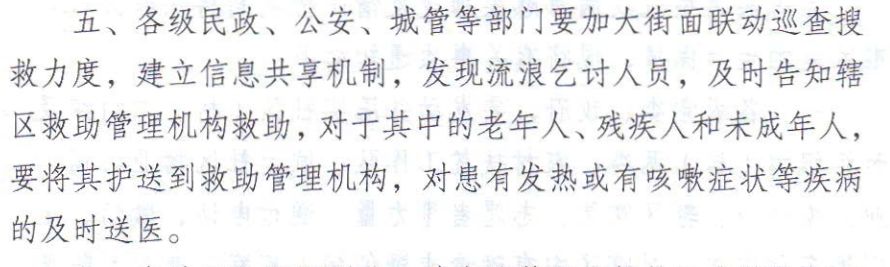 五、各级民政、公安、城管等部门要加大街面联动巡查搜
救力度，建立信息共享机制，发现流浪乞讨人员，及时告知辖
区救助管理机构救助，对于其中的老年人、残疾人和未成年人，
要将其护送到救助管理机构，对患有发热或有咳嗽症状等疾病
的及时送医。